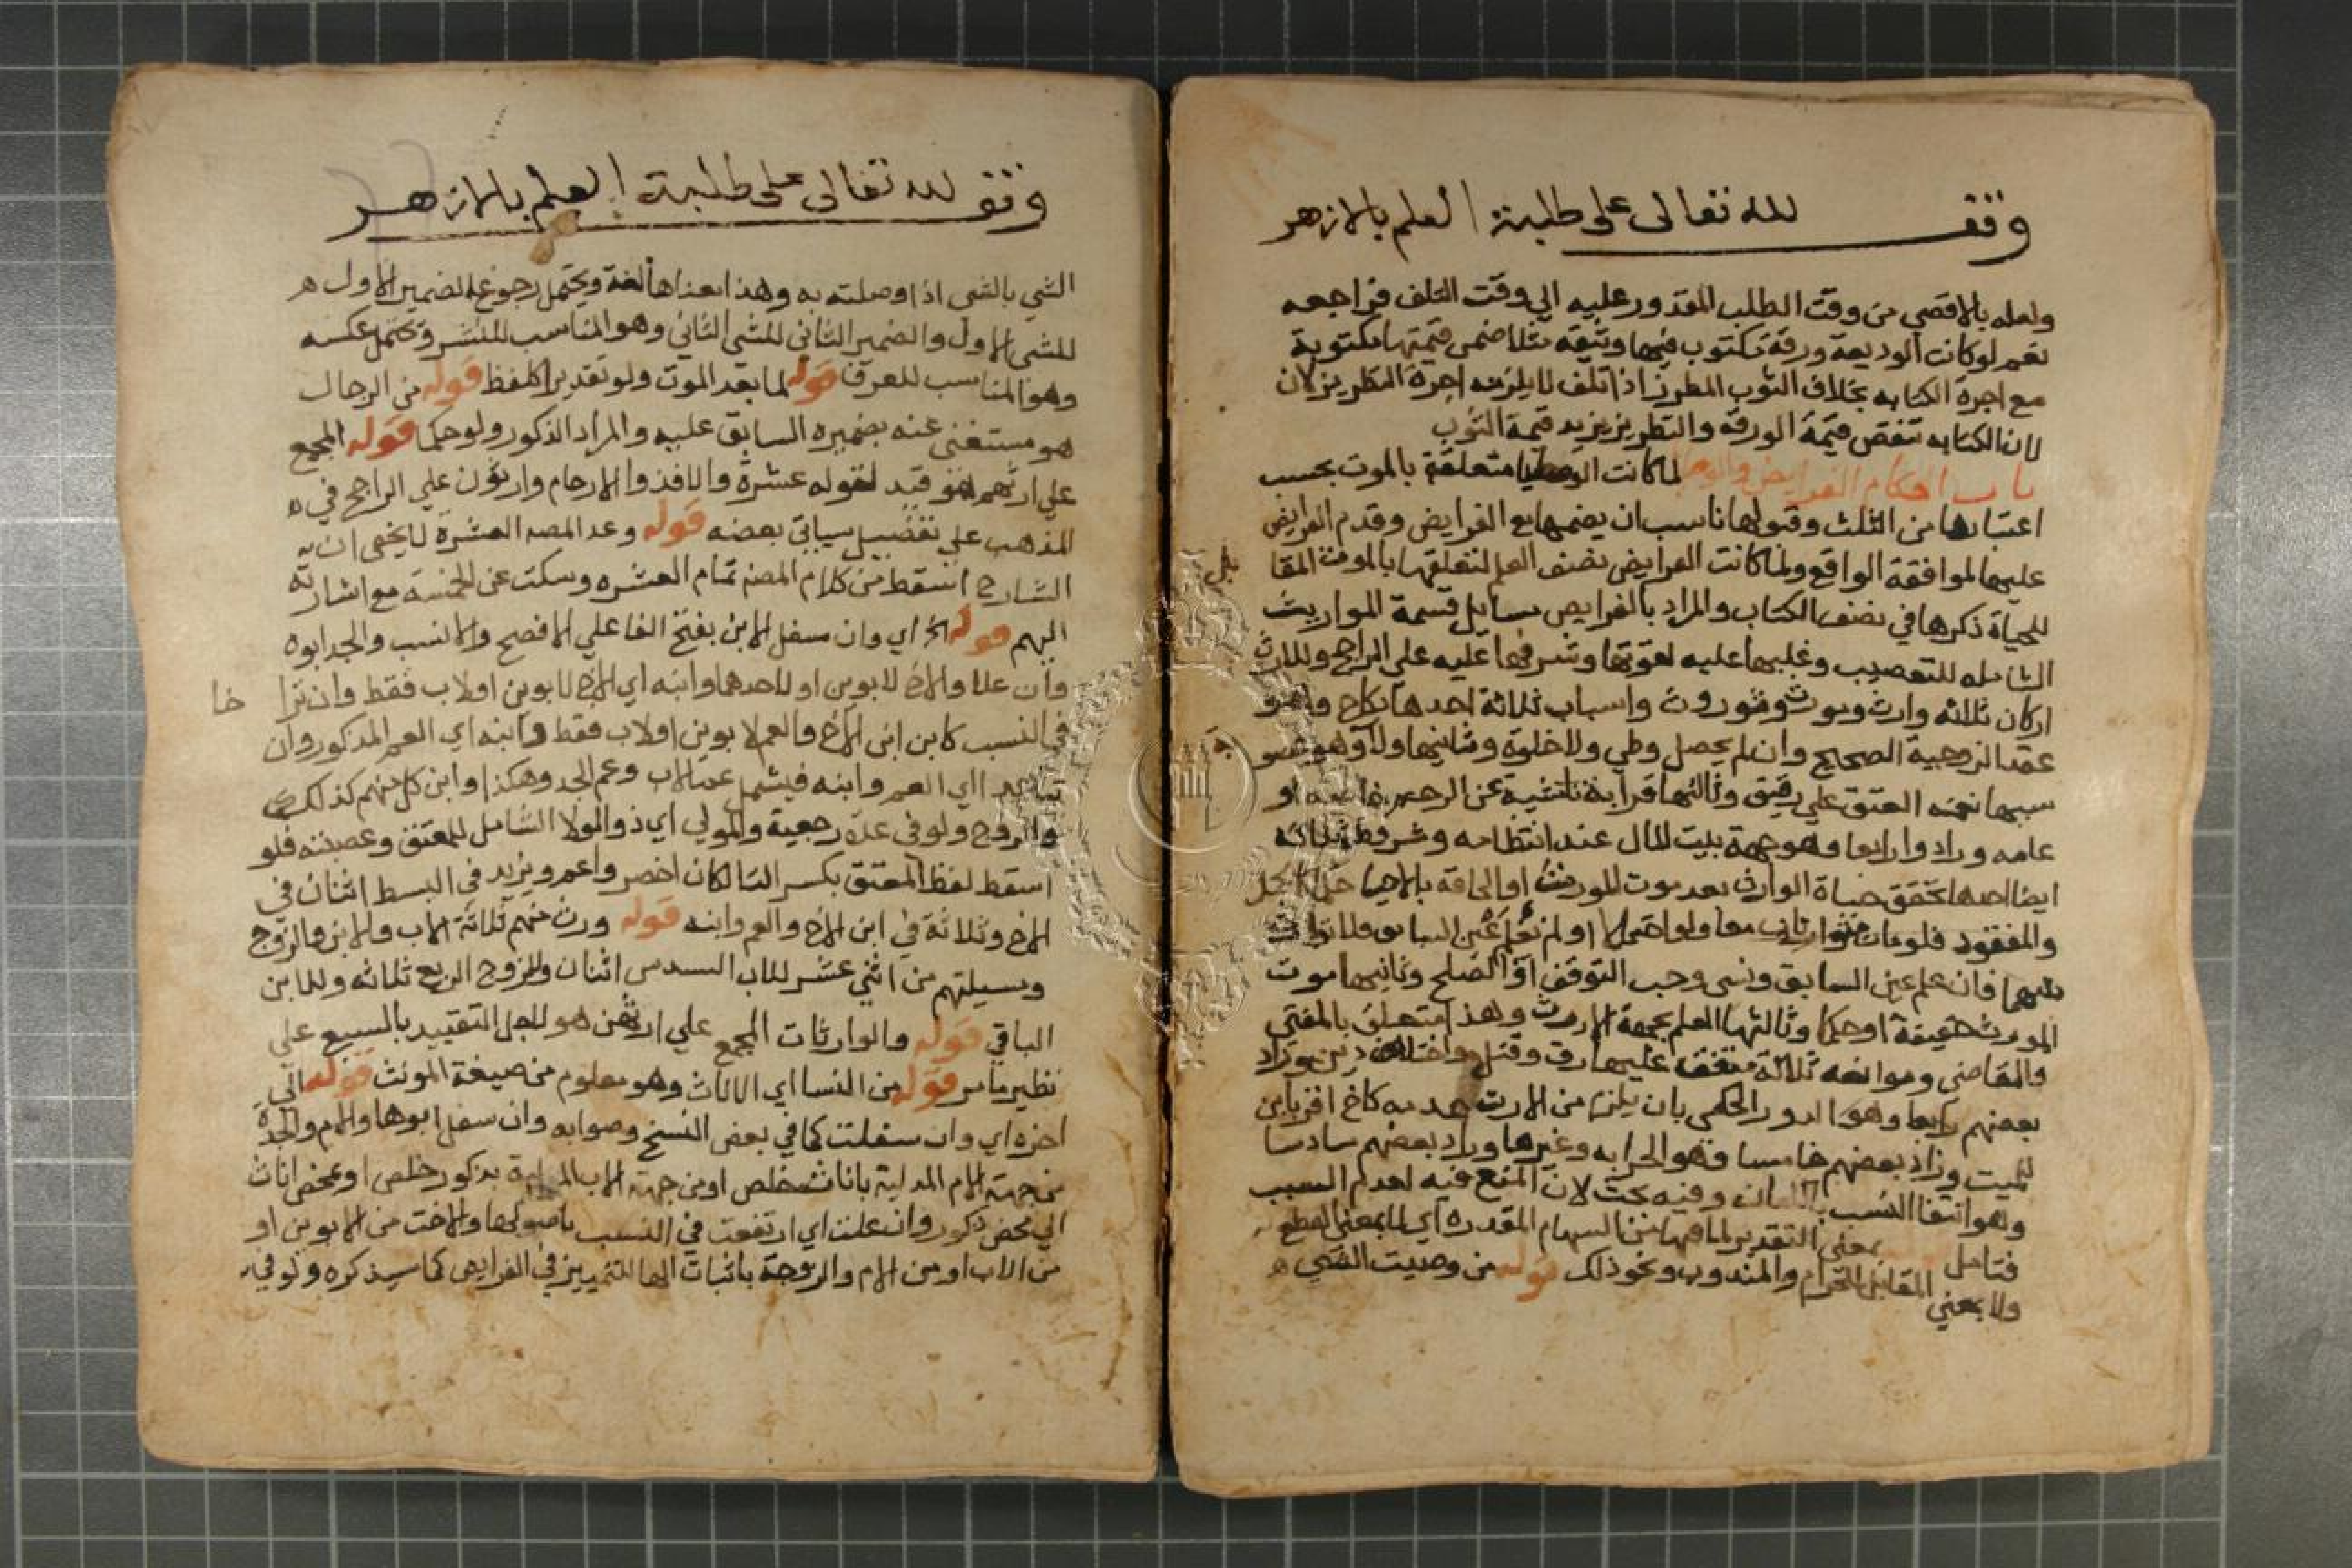 وقف لله تعالى على طلبة العلم بالازهر
ولعله بالاقصي من وقت الطلب المقدور عليه الي وقت التلف فراجعه
نعم لو كانت الوديعة ورقة مكتوب فيها وثيقة مثلا ضمن قيمتها مكتوبة
مع اجرة الكتابه بخلاف الثوب المطرز اذا تلف لا يلزمه اجرة التطريز لان
لان الكتابه تنقص قيمة الورقة والتطريز يزيد قيمة الثوب
باب احكام الفرايض والوصايا لما كانت الوصايا متعلقة بالموت بحسب
اعتبارها من الثلث وقبولها ناسب ان يضمها مع الفرايض وقدم الفرايض
عليها لموافقة الواقع ولما كانت الفرايض نصف العلم لتعلقها بالموت المقا
بل
للحياة ذكرها في نصف الكتاب والمراد بالفرايض مسايل قسمة المواريث
الشامله للتعصيب وغلبها عليه لقوتها وشرفها عليه على الراجح وللارث
اركان ثلاثه وارث وموروث وموروث واسباب ثلاثة احدها نكاح وهو
عقد الزوجية الصحيح وان لم يحصل وطي ولا خلوة وثانيها ولاء وهو عصو
بة
سببها نعمة العتق علي رقيق وثالثها قرابة ناشية عن الرحم خاصه او
عامه وزاد وارابعا وهو جهة بيت المال عند انتظامه وشروط ثلاثه
ايضا احدها تحقق حياة الوارث بعد موت المورث او الحاقه بالاحيا حملا كالحمل
والمفقود فلو مات متوارثان معا ولو احتمالا او لم نعلم عين السابق فلا توارث
بينهما فان علم عين السابق ونسي وجب التوقف او الصلح وثانيها موت
المورث حقيقة او حكما وثالثها العلم بجهة الارث وهذا متعلق بالمفتي
والقاضي وموانعه ثلاثة متفق عليها رق وقتل واختلاف دين وزاد
بعضهم رابعا وهو الدور الحكمي بان يلزم من الارث عدمه كاخ اقر بابن
للميت وزاد بعضهم خامسا وهو الحرابه وغيرها وزاد بعضهم سادسا
وهو انتفا النسب باللعان وفيه بحث لان المنع فيه لعدم السبب
فتامل بمعني التقدير لما فيها من السهام المقدره اي لا بمعني القطع
ولا بمعني المقابل للحرام والمندوب ونحو ذلك قوله من وصيت الشي
وقف لله تعالى على طلبة العلم بالازهر
الشي بالشي اذا وصلته به وهذا معناها لغة ويحتمل رجوع الضمير الاول
للشي الاول والضمير الثاني للشي الثاني وهو المناسب للنشر ويحتمل عكسه
وهو المناسب للعرف قوله لما بعد الموت ولو تقديرا كلفظ قوله من الرجال
هو مستغني عنه بضميره السابق عليه والمراد الذكور ولو حكما قوله المجمع
علي ارثهم هو قيد لقوله عشرة والافذوا الارحام وارثون علي الراجح في
المذهب علي تفصيل سياتي بعضه قوله وعد المصه العشرة لا يخفي ان
الشارح اسقط من كلام المصنم تمام العشره وسكت عن الخمسة مع اشارته
اليهم قوله الخ اي وان سفل الابن بفتح الفا علي الافصح والانسب والجد ابوه
وان علا والاخ لابوين او لاحدهما وابنه اي الاخ لابوين او لاب فقط وان ترا خا
في النسب كابن ابن الاخ والعم لابوين او لاب فقط وابنه اي العم المذكور وان
تباعدا اي العم وابنه فيشمل عم الاب وعم الجد وهكذا وابن كل منهم كذلك
والزوج ولو في عدة رجعية والمولي اي ذو الولا الشامل للمعتق وعصبته فلو
اسقط لفظ المعتق بكسر التا لكان اخصر واعم ويزيد في البسط اثنان في
الاخ وثلاثة في ابن الاخ والعم وابنه قوله ورث منهم ثلاثة الاب والابن والزوج
ومسيلتهم من اثني عشر للاب السدس اثنان وللزوج الربع ثلاثه وللابن
الباقي قوله والوارثات المجمع علي ارثهن هو لاجل التقييد بالسبع علي
نظير ما مر قوله من النسا اي الاناث وهو معلوم من صيغة المونث قوله الي
اخره اي وان سفلت كما في بعض النسخ وصوابه وان سفل ابوها والام والجدة
من جهة الام المدلية باناث خلص او من جهة الاب المدلية بذكور خلص او بمحض اناث
الي محض ذكور وان علت اي ارتفعت في النسب باصولها والاخت من الابوين او
من الاب او من الام والزوجة باثبات الها للتمييز في الفرايض كما سيذكره ولو في